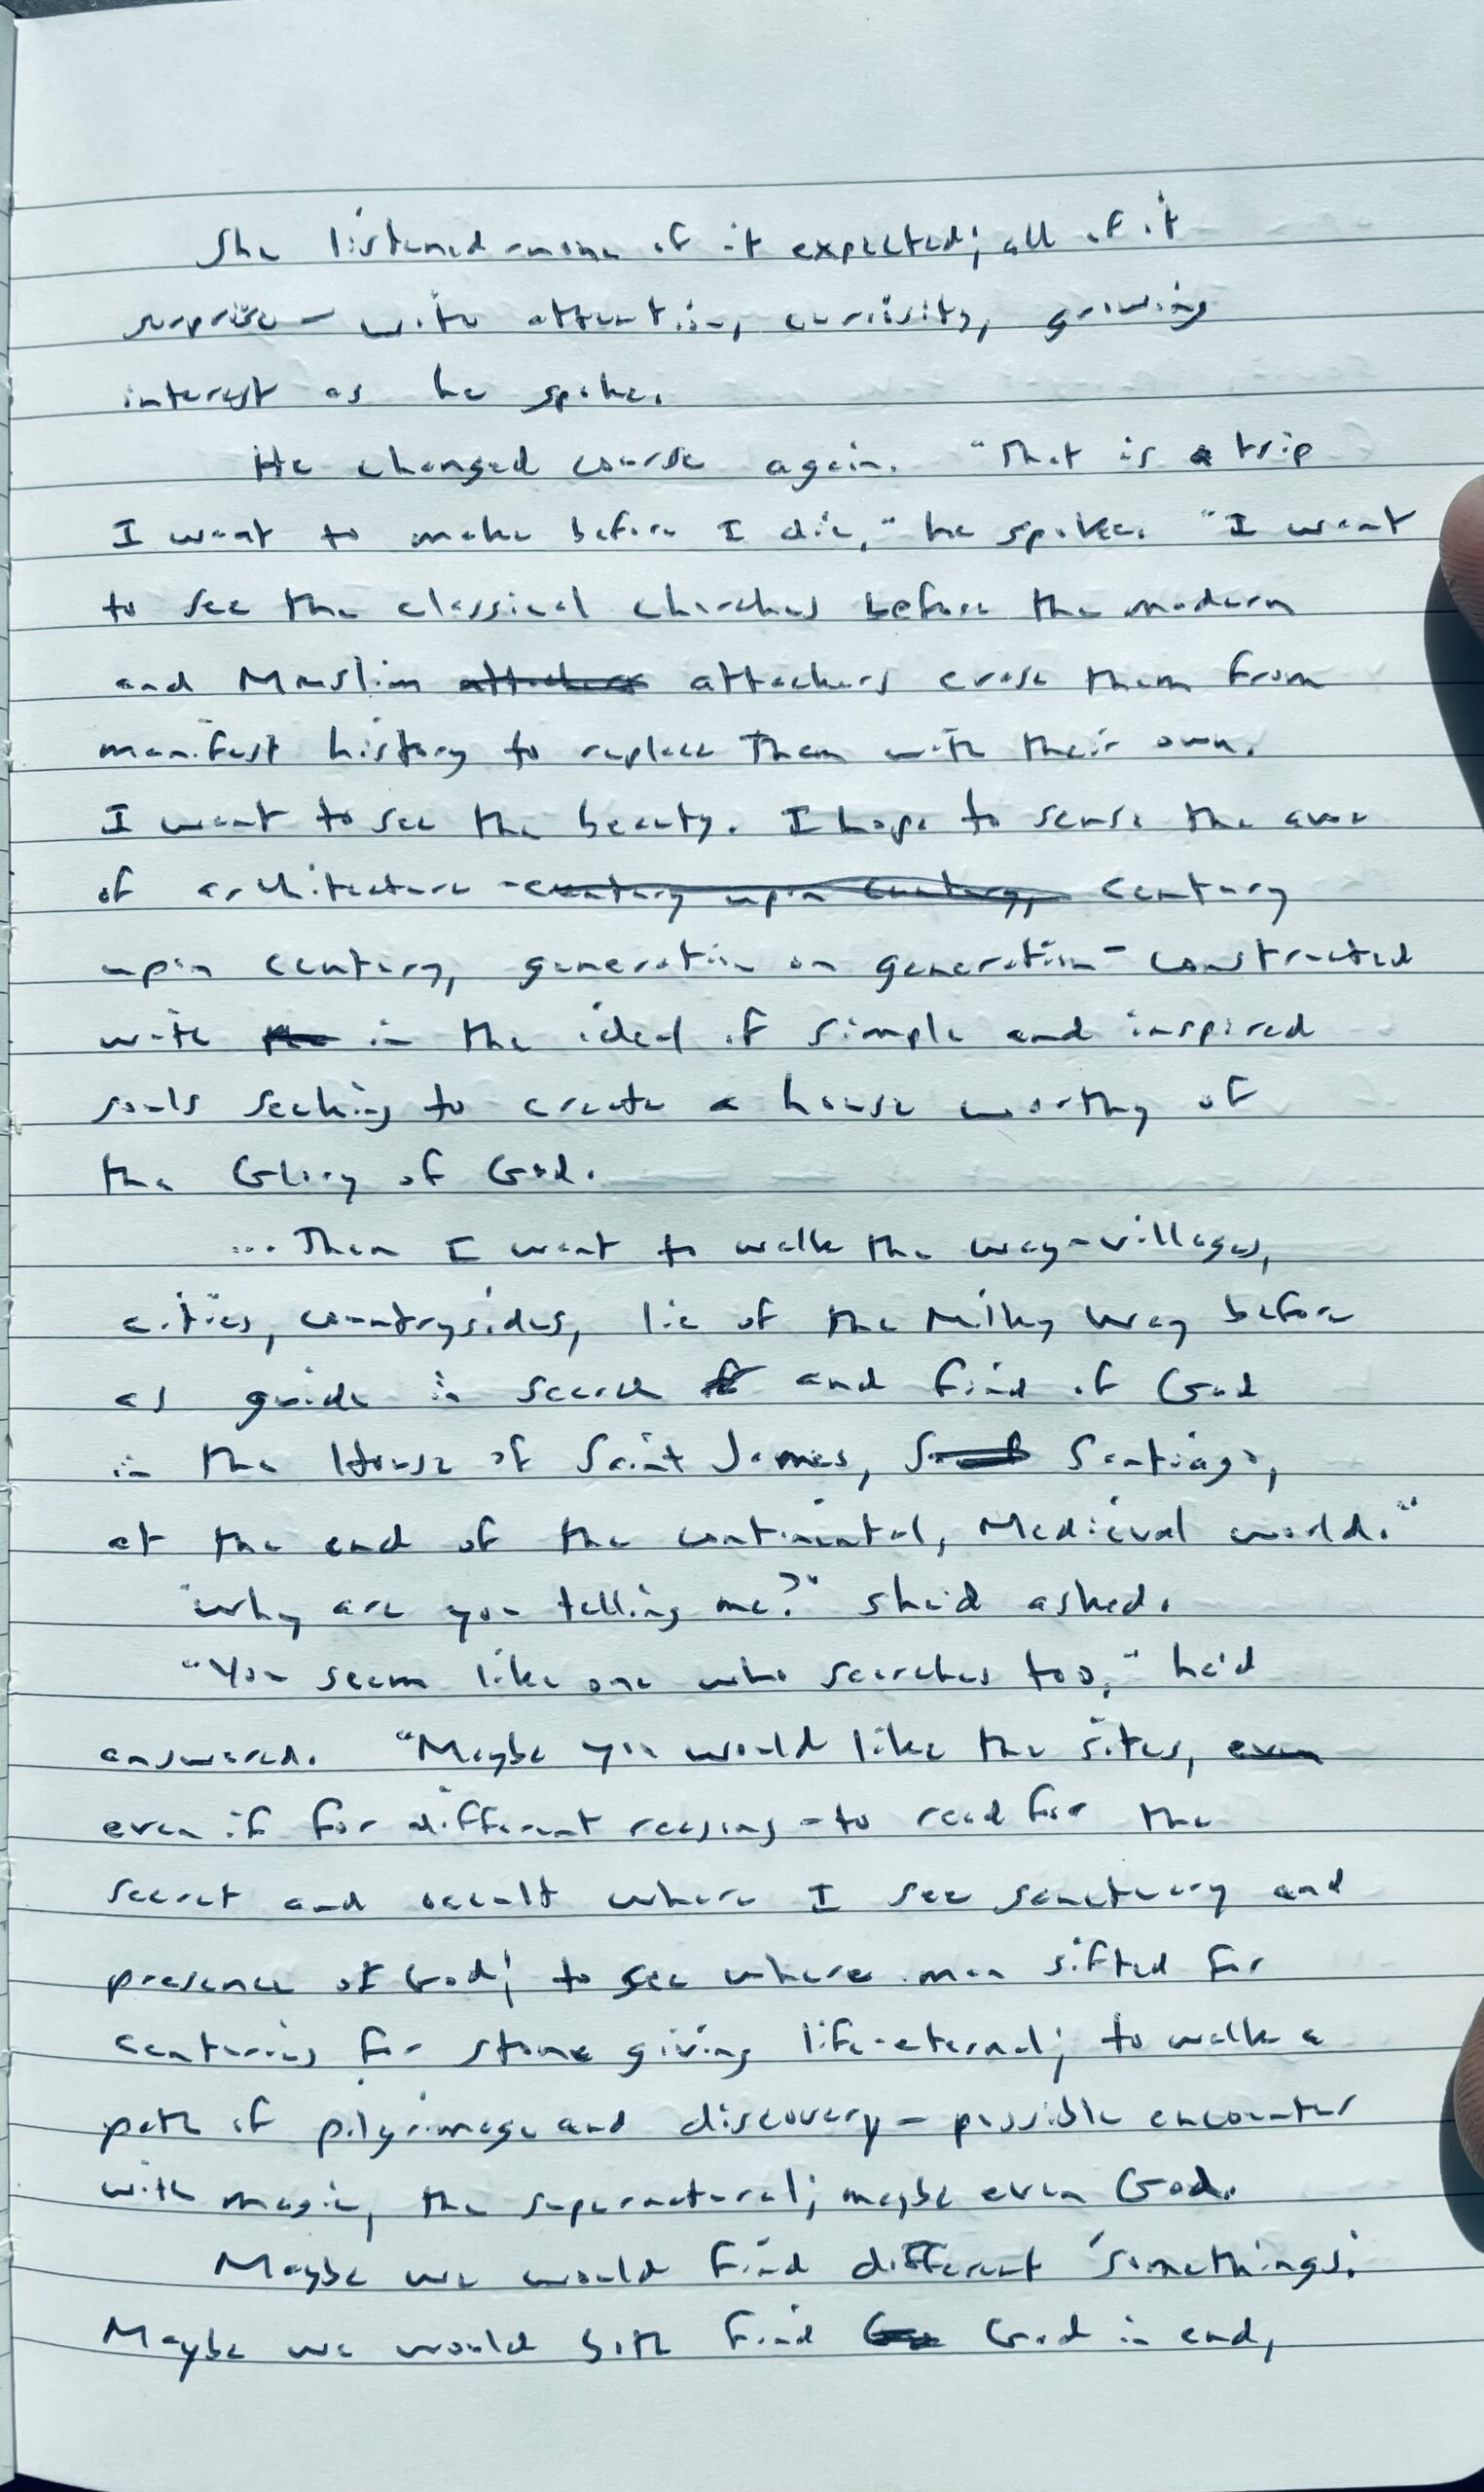 She listened - none of it expected; all of it
surprise - with attention, curiosity, growing
interest as he spoke.
He changed course again. "That is a trip
I want to make before I die," he spoke. "I want
to see the classical churches before the modern
and Muslim attackers attackers erase them from
manifest history to replace them with their own.
I want to see the beauty. I hope to sense the awe
of architecture - century upon century, century
upon century, generation on generation - constructed
with the in the ideal of simple and inspired
souls seeking to create a house worthy of
the Glory of God.
... Then I want to walk the way - villages,
cities, countrysides, lie of the Milky Way before
as guide in search and find of God
in the House of Saint James, Santiago,
at the end of the continental, Medieval world."
"Why are you telling me?" she'd asked.
"You seem like one who searches too," he'd
answered. "Maybe you would like the sites, even
even if for different reasons - to read for the
secret and occult where I see sanctuary and
presence of God; to see where men sifted for
centuries for stone giving life-eternal; to walk a
path of pilgrimage and discovery - possible encounter
with magic, the supernatural; maybe even God.
Maybe we would find different 'somethings.'
Maybe we would both find God in end,